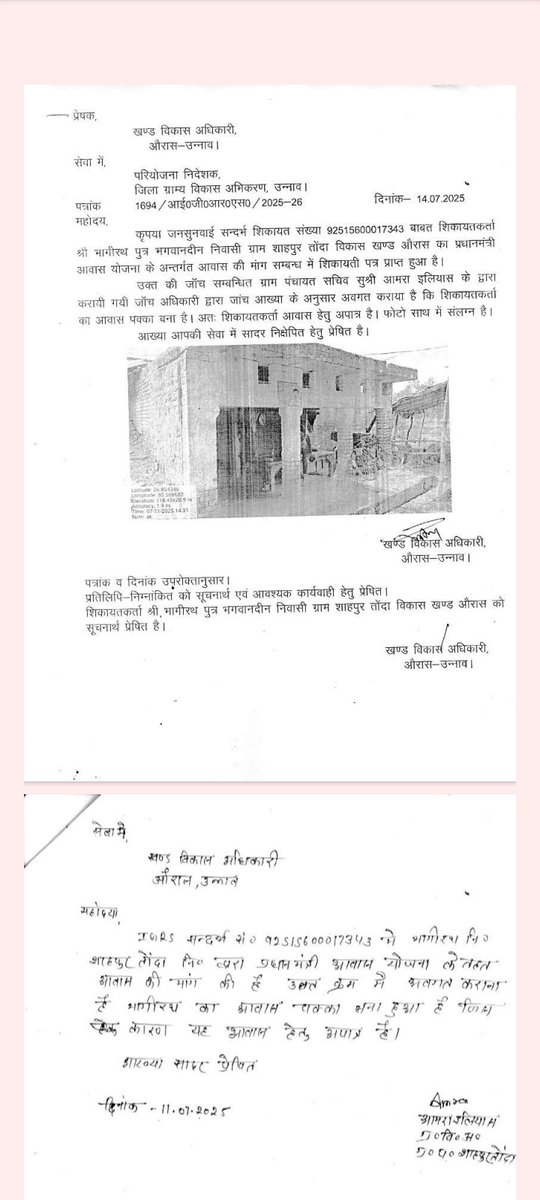 प्रेषक,
खण्ड विकास अधिकारी,
औरास–उन्नाव।
सेवा में,
परियोजना निदेशक,
जिला ग्राम्य विकास अभिकरण, उन्नाव।
पत्रांक 1694/आई0जी0आर0एस0/2025–26 दिनांक– 14.07.2025
महोदय,
कृपया जनसुनवाई सन्दर्भ शिकायत संख्या 92515600017343 बाबत शिकायतकर्ता
श्री भागीरथ पुत्र भगवानदीन निवासी ग्राम शाहपुर तोंदा विकास खण्ड औरास का प्रधानमंत्री
आवास योजना के अन्तर्गत आवास की मांग सम्बन्ध में शिकायती पत्र प्राप्त हुआ है।
उक्त की जॉच सम्बन्धित ग्राम पंचायत सचिव सुश्री आमरा इलियास के द्वारा
करायी गयी जॉच अधिकारी द्वारा जांच आख्या के अनुसार अवगत कराया है कि शिकायतकर्ता
का आवास पक्का बना है। अतः शिकायतकर्ता आवास हेतु अपात्र है। फोटो साथ में संलग्न है।
आख्या आपकी सेवा में सादर निक्षेपित हेतु प्रेषित है।
Latitude: 26.854346
Longitude: 80.568683
Elevation: 118.45±20.9 m
Accuracy: 1.9 m
Time: 07-11-2025 14:31
Note: ak
खण्ड विकास अधिकारी,
औरास–उन्नाव।
पत्रांक व दिनांक उपरोक्तानुसार।
प्रतिलिपि–निम्नांकित को सूचनार्थ एवं आवश्यक कार्यवाही हेतु प्रेषित।
शिकायतकर्ता श्री भागीरथ पुत्र भगवानदीन निवासी ग्राम शाहपुर तोंदा विकास खण्ड औरास को
सूचनार्थ प्रेषित है।
खण्ड विकास अधिकारी,
औरास–उन्नाव।
सेवा में,
खण्ड विकास अधिकारी
औरास, उन्नाव
महोदया,
IGRS सन्दर्भ सं० 92515600017343 में भागीरथ नि०
शाहपुर तोंदा नि० द्वारा प्रधानमंत्री आवास योजना के तहत
आवास की मांग की है उक्त क्रम में अवगत कराना
है भागीरथ का आवास पक्का बना हुआ है जिस
के कारण यह आवास हेतु अपात्र है।
आख्या सादर प्रेषित
दिनांक - 11.07.2025
Amra
आमरा इलियास
ग्रा० वि० अ०
ग्रा० पं० शाहपुर तोंदा